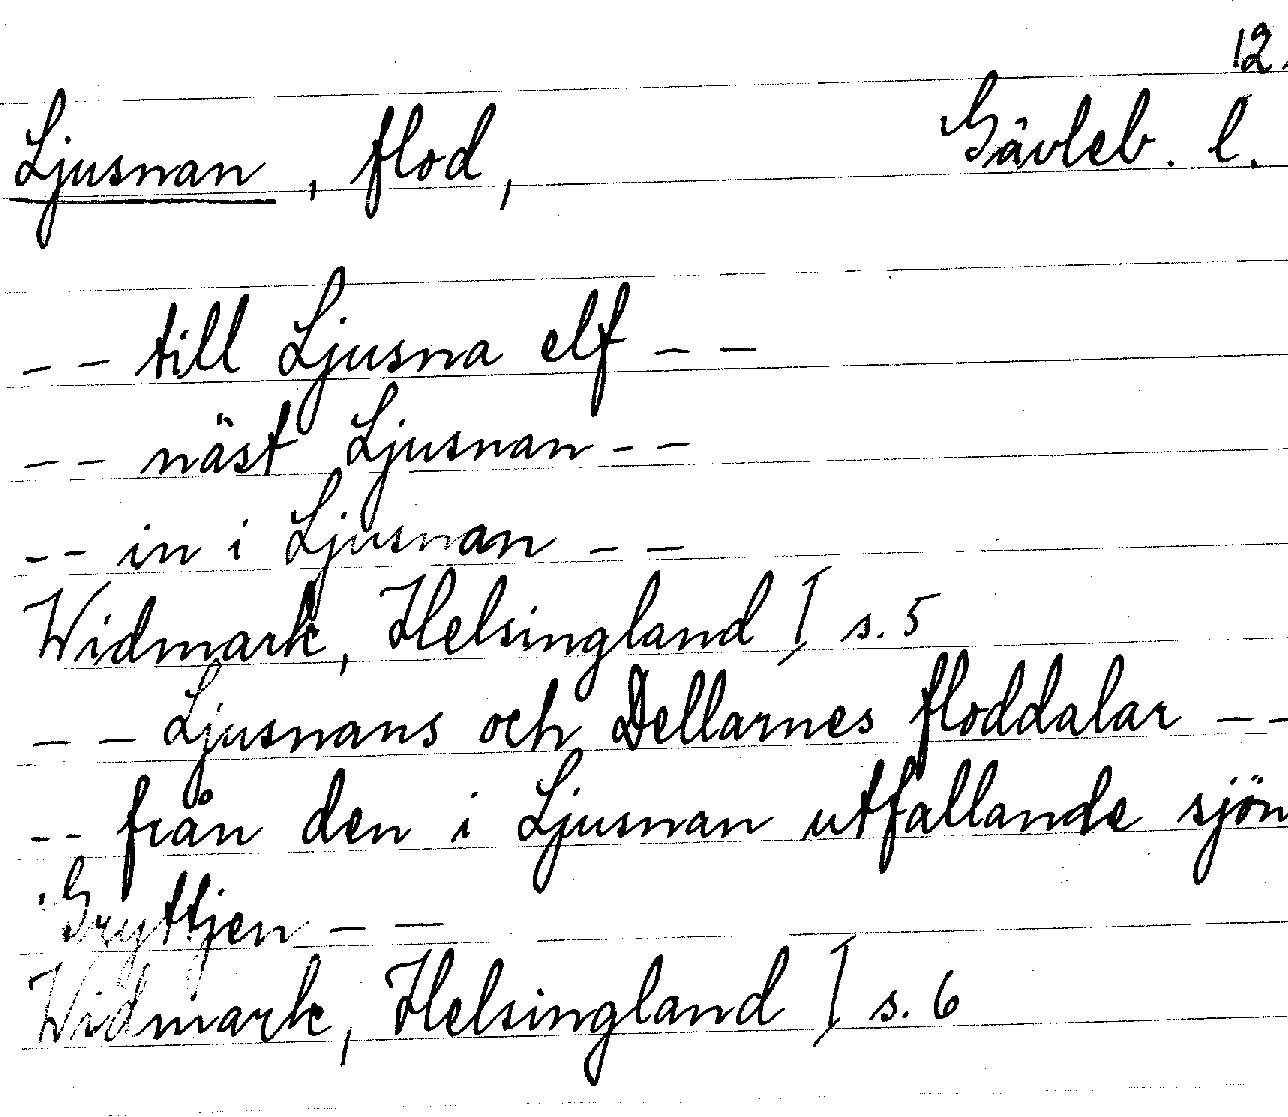 12.
Ljusnan, flod, Gävleb. l.
-- till Ljusna elf --
-- näst Ljusnan --
-- in i Ljusnan --
Widmark, Helsingland I s. 5
-- Ljusnans och Dellarnes floddalar --
-- från den i Ljusnan utfallande sjön
Gryttjen --
Widmark, Helsingland I s. 6